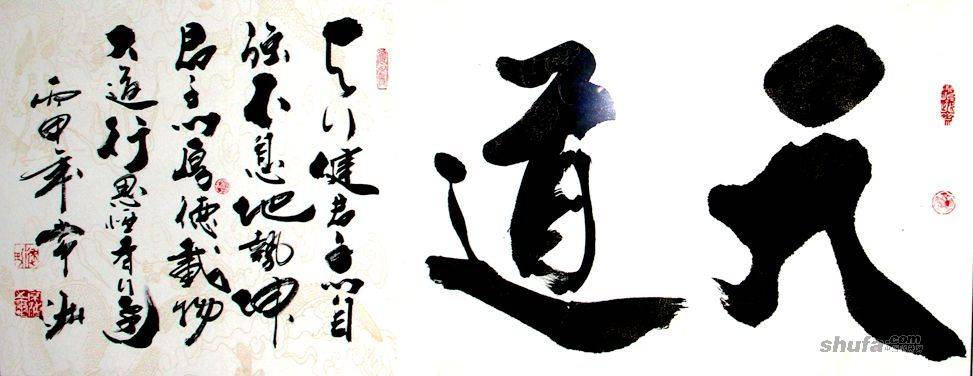 天道
天行健君子以自
强不息地勢坤
君子以厚德載物
大道行思
丙申年
shufa.com